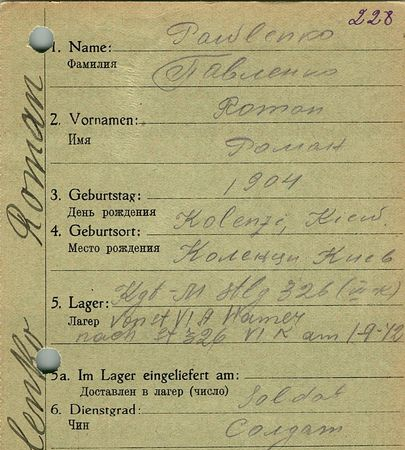 228
1. Name: Pawlenko
Фамилия Павленко
2. Vornamen: Roman
Имя Роман
3. Geburtstag: 1904
День рождения
4. Geburtsort: Kolenzi, Kiew
Место рождения Коленци Киев
5. Lager: Kgf-M Stlg 326 (VI K)
Лагер VI A Hemer
nach St 326 VI K am 1-9-42
5a. Im Lager eingeliefert am:
Доставлен в лагер (число)
6. Dienstgrad: Soldat
Чин Солдат
Roman
lenko